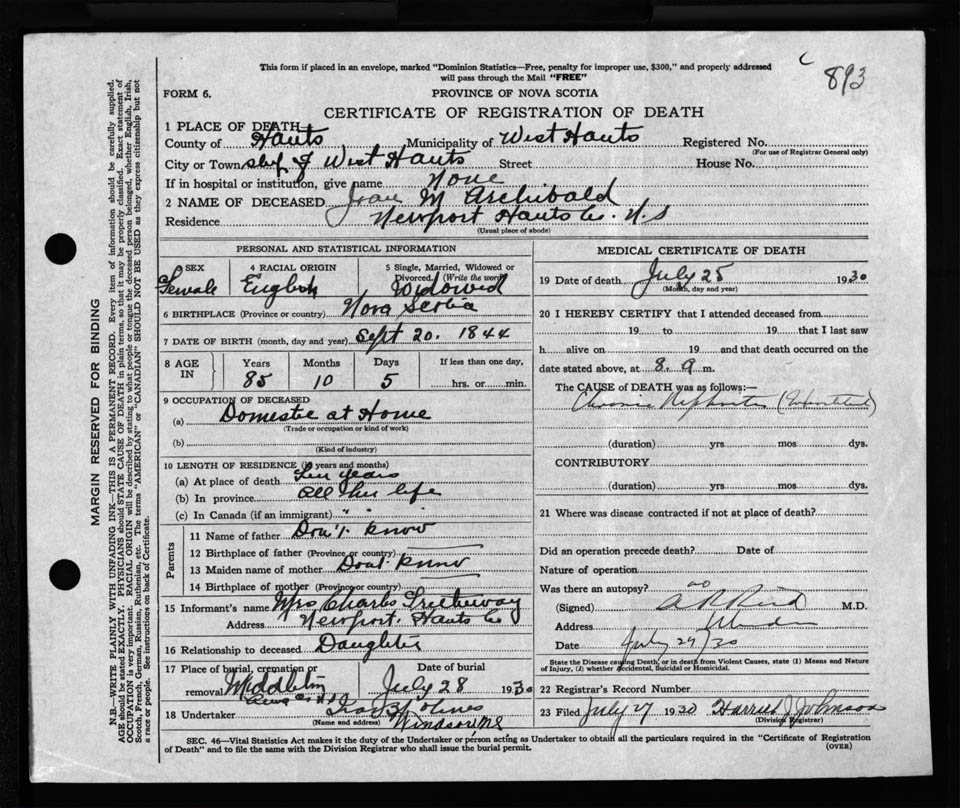 This form if placed in an envelope, marked "Dominion Statistics—Free, penalty for improper use, $300," and properly addressed
will pass through the Mail "FREE"
c 893
FORM 6.
PROVINCE OF NOVA SCOTIA
CERTIFICATE OF REGISTRATION OF DEATH
1 PLACE OF DEATH
County of Hants Municipality of West Hants Registered No.
(For use of Registrar General only)
City or Town of West Hants Street House No.
If in hospital or institution, give name None
2 NAME OF DECEASED M Archibald
Residence Newport Hants Co. N.S
(Usual place of abode)
PERSONAL AND STATISTICAL INFORMATION
SEX
Female
4 RACIAL ORIGIN
English
5 Single, Married, Widowed or
Divorced. (Write the word)
Widowed
6 BIRTHPLACE (Province or country) Nova Scotia
7 DATE OF BIRTH (month, day and year) Sept 20. 1844
8 AGE
IN
Years Months Days If less than one day,
85 10 5 hrs. or min.
9 OCCUPATION OF DECEASED
(a) Domestic at Home
(Trade or occupation or kind of work)
(b)
(Kind of industry)
10 LENGTH OF RESIDENCE (in years and months)
(a) At place of death years
(b) In province all her life
(c) In Canada (if an immigrant) " "
Parents
11 Name of father Don't Know
12 Birthplace of father (Province or country)
13 Maiden name of mother Dont Know
14 Birthplace of mother (Province or country)
15 Informant's name Mrs Charles
Address Newport. Hants Co
16 Relationship to deceased Daughter
17 Place of burial, cremation or
removal Middleton
Date of burial
July 28 1930
18 Undertaker
(Name and address)
Windsor, NS
MEDICAL CERTIFICATE OF DEATH
19 Date of death July 25 1930
(Month, day and year)
20 I HEREBY CERTIFY that I attended deceased from
19 to 19 that I last saw
h alive on 19 and that death occurred on the
date stated above, at 8. a m.
The CAUSE of DEATH was as follows:—
Chronic Nephritis
(duration) yrs. mos. dys.
CONTRIBUTORY
(duration) yrs. mos. dys.
21 Where was disease contracted if not at place of death?
Did an operation precede death? Date of
Nature of operation
Was there an autopsy? no
(Signed) A R Reid M.D.
Address Windsor
Date July 27/30
State the Disease causing Death, or in death from Violent Causes, state (1) Means and Nature
of Injury, (2) whether Accidental, Suicidal or Homicidal.
22 Registrar's Record Number
23 Filed July 27 1930 Harried J Johnson
(Division Registrar)
SEC. 46—Vital Statistics Act makes it the duty of the Undertaker or person acting as Undertaker to obtain all the particulars required in the "Certificate of Registration
of Death" and to file the same with the Division Registrar who shall issue the burial permit.
(OVER)
MARGIN RESERVED FOR BINDING
N.B.—WRITE PLAINLY WITH UNFADING INK—THIS IS A PERMANENT RECORD. Every item of information should be carefully supplied.
AGE should be stated EXACTLY. PHYSICIANS should STATE CAUSE OF DEATH in plain terms, so that it may be properly classified. Exact statement of
OCCUPATION is very important. RACIAL ORIGIN will be described by stating to what people or tongue the deceased person belonged, whether English, Irish,
Scotch, French, German, Russian, Ruthenian, etc. The terms "AMERICAN" or "CANADIAN" SHOULD NOT BE USED as they express citizenship but not
a race or people. See instructions on back of Certificate.